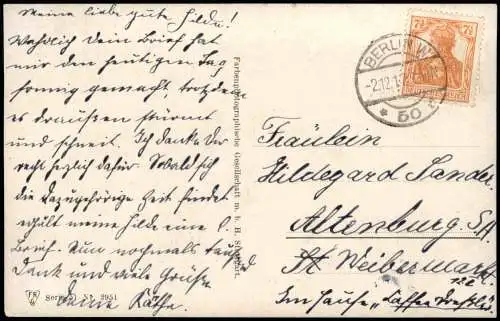 Meine liebe gute Hilde!
Wahrlich Dein Brief hat
mir den heutigen Tag
sonnig gemacht trotzdem
es draussen stürmt
und schneit. Ich danke Dir
recht herzlich dafür. Sobald sich
die dazugehörige Zeit findet
erhält meine Hilde eine
Brief. Nun nochmals tausend
Dank und viele Grüße
Deine Käthe.
Farbenphotographische Gesellschaft m. b. H. Stuttgart.
Serie Nr. 2951
BERLIN W.
-2.12.1
* 50
7½ 7½
Fräulein
Hildegard Sander
Altenburg S/A
St. Weibermarkt
Im Hause